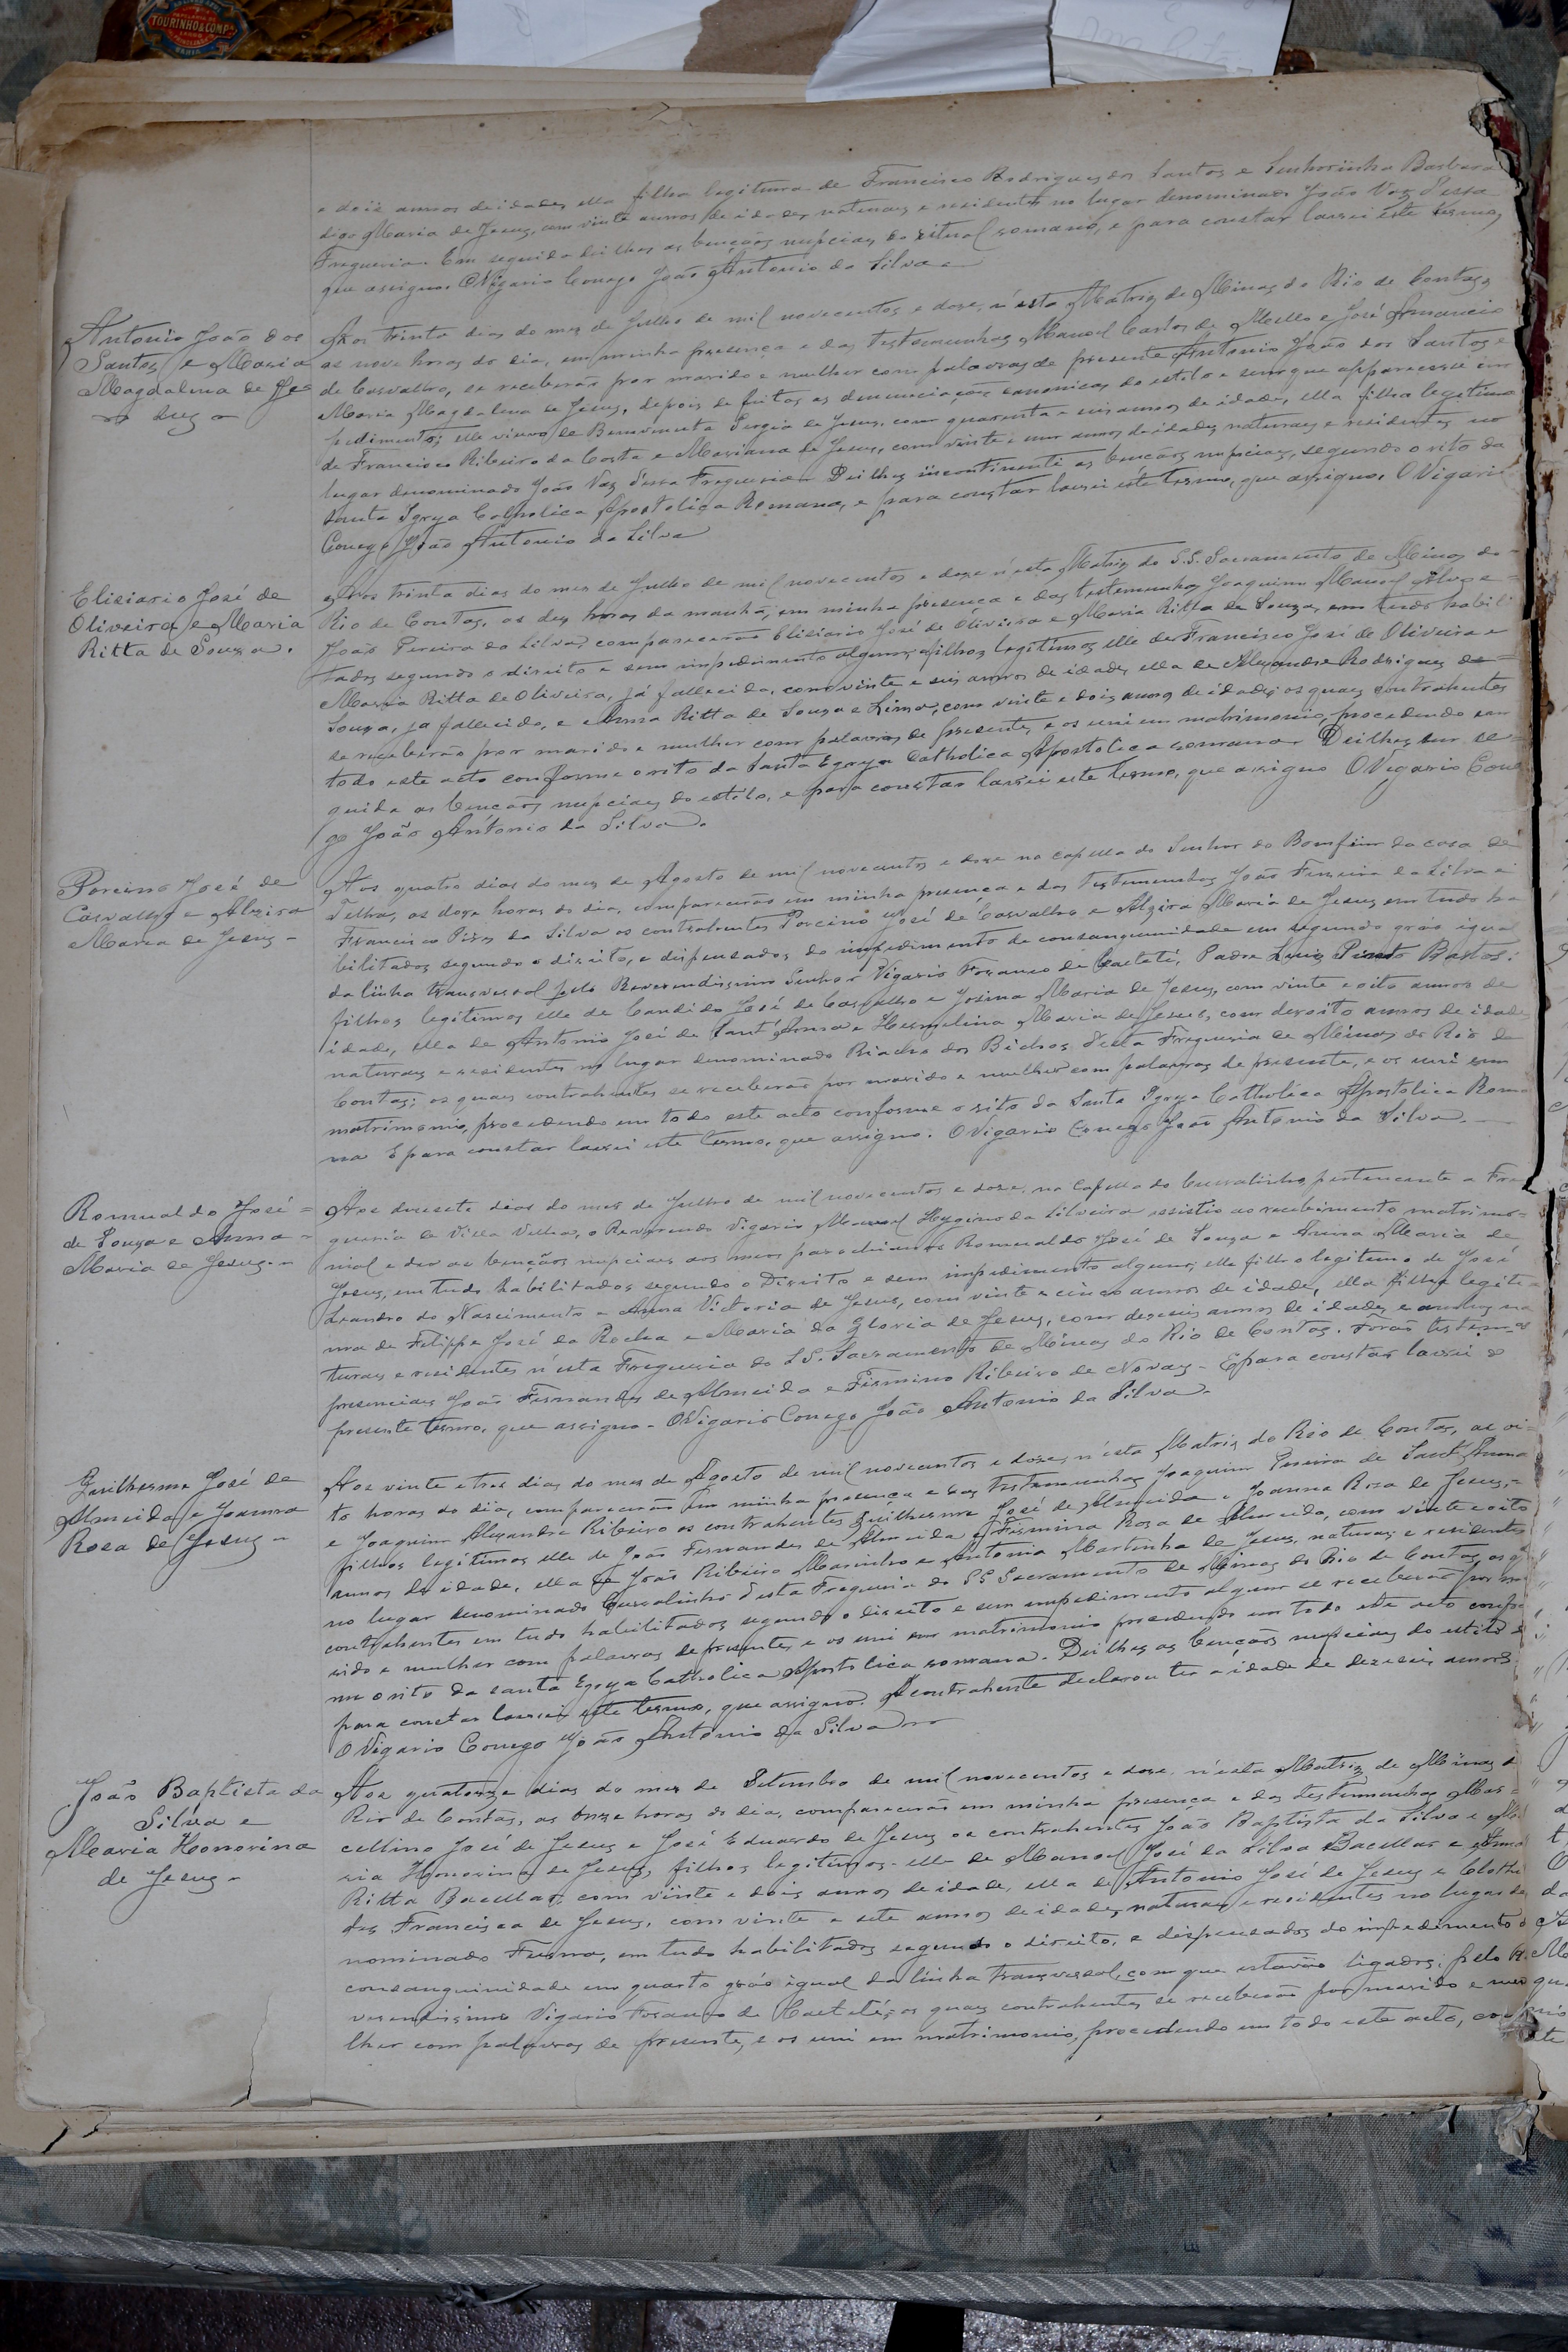 TOURINHO & COMPª
BAHIA
e dois annos de idade, ella filha legitima de Francisco Rodrigues dos Santos e Senhorinha Barbara
digo Maria de Jesus, com vinte annos de idade, naturaes e residentes no lugar denominado João Vaz d'essa
Freguesia. Em seguida dei lhes as bençãos nupciaes do ritual romano, e para constar lavrei este termo,
que assigno. O Vigario Conego João Antonio da Silva
Antonio João dos
Santos e Maria
Magdalena de Je
sus
Aos trinta dias do mez de Julho de mil novecentos e doze, n'esta Matriz de Minas do Rio de Contas,
as nove horas do dia, em minha presença e das testemunhas Manoel Carlos de Mello e José Amancio
de Carvalho, se receberão por marido e mulher com palavras de presente Antonio João dos Santos e
Maria Magdalena de Jesus, depois de feitas as denunciações canonicas do estilo e sem que apparecesse im
pedimento; elle viuvo de Benvinuta Sergia de Jesus, com quarenta e seis annos de idade, ella filha legitima
de Francisco Ribeiro da Costa e Mariana de Jesus, com vinte e um annos de idade, naturaes e residentes no
lugar denominado João Vaz d'essa Freguesia. Dei lhes incontinenti as bençãos nupciaes, segundo o rito da
Santa Igreja Catholica Apostolica Romana, e para constar lavrei este termo, que assigno. O Vigario
Conego João Antonio da Silva
Elisiario José de
Oliveira e Maria
Ritta de Souza.
Aos trinta dias do mez de Julho de mil novecentos e doze n'esta Matriz do S.S. Sacramento de Minas do
Rio de Contas, as dez horas da manhã, em minha presença e das testemunhas Joaquim Manoel Alves e
João Pereira da Silva, comparecerão Elisiario José de Oliveira e Maria Ritta de Souza, em tudo habili
tados segundo o direito e sem impedimento algum, filhos legitimos elle de Francisco José de Oliveira e
Maria Ritta de Oliveira, já fallecida, com vinte e seis annos de idade, ella de Alexandre Rodrigues de
Souza, ja fallecido, e Anna Ritta de Souza e Lima, com vinte e dois annos de idade; os quaes contrahentes
se receberão por marido e mulher com palavras de presente, e os uni em matrimonio, procedendo em
todo este acto conforme o rito da Santa Egreja Catholica Apostolica romana. Dei lhes em se
guida as bençãos nupciaes do estilo, e para constar lavrei este termo, que assigno O Vigario Cone
go João Antonio da Silva.
Porcino José de
Carvalho e Alzira
Maria de Jesus
Aos quatro dias do mez de Agosto de mil novecentos e doze na capella do Senhor do Bomfim da casa de
Telha, as doze horas do dia, comparecerão em minha presença e das testemunhas João Ferreira da Silva e
Francisco Pires da Silva os contrahentes Porcino José de Carvalho e Alzira Maria de Jesus em tudo ha
bilitados segundo o direito, e dispensados do impedimento de consanguinidade em segundo gráo igual
da linha transversal pelo Reverendissimo Senhor Vigario Foraneo de Caeteté, Padre Luiz Pinto Bastos:
filhos legitimos elle de Candido José de Carvalho e Josina Maria de Jesus, com vinte e oito annos de
idade, ella de Antonio José de Sant'Anna e Hermelina Maria de Jesus, com desoito annos de idade
naturaes e residentes no lugar denominado Riacho dos Bichos d'esta Freguesia de Minas do Rio de
Contas; os quaes contrahentes se receberão por marido e mulher com palavras de presente, e os uni em
matrimonio, procedendo em todo este acto conforme o rito da Santa Igreja Catholica Apostolica Roma
na E para constar lavrei este termo, que assigno. O Vigario Conego João Antonio da Silva.
Romualdo José
de Souza e Anna
Maria de Jesus
Aos desesete dias do mez de Julho de mil novecentos e doze, na Capella do Curralinho, pertencente a Fre
guesia de Villa Velha, o Reverendo Vigario Manoel Hygino da Silveira assistio ao recebimento matrimo
nial e deu as bençãos nupciaes aos meus parochianos Romualdo José de Souza e Anna Maria de
Jesus, em tudo habilitados segundo o Direito e sem impedimento algum; elle filho legitimo de José
Leandro do Nascimento e Anna Victoria de Jesus, com vinte e cinco annos de idade, ella filha legiti
ma de Felippe José da Rocha e Maria da Gloria de Jesus, com deseseis annos de idade, e ambos na
turaes e residentes n'esta Freguesia do S.S. Sacramento de Minas do Rio de Contas. Forão testemas
presenciaes João Fernandes de Almeida e Firmino Ribeiro de Novaes. E para constar lavrei o
presente termo, que assigno. O Vigario Conego João Antonio da Silva.
Guilherme José de
Almeida e Joanna
Rosa de Jesus
Aos vinte e tres dias do mez de Agosto de mil novecentos e doze, n'esta Matriz do Rio de Contas, as oi
to horas do dia, comparecerão em minha presença e das testemunhas Joaquim Pereira de Sant'Anna
e Joaquim Alexandre Ribeiro os contrahentes Guilherme José de Almeida e Joanna Rosa de Jesus,
filhos legitimos elle de João Fernandes de Almeida e Firmina Rosa de Almeida, com vinte e oito
annos de idade, ella de João Ribeiro Marinho e Antonia Martinha de Jesus, naturaes e residentes
no lugar denominado Curralinho d'esta Freguesia do SS Sacramento de Minas do Rio de Contas, os qs
contrahentes em tudo habilitados segundo o direito e sem impedimento algum se receberão por ma
rido e mulher com palavras de presente, e os uni em matrimonio procedendo em todo este acto confor
me o rito da santa Egreja Catholica Apostolica romana. Dei lhes as bençãos nupciaes do estilo e
para constar lavrei este termo, que assigno. A contrahente declarou ter a idade de dezeseis annos.
O Vigario Conego João Antonio da Silva
João Baptista da
Silva e
Maria Honorina
de Jesus
Aos quatorze dias do mez de Setembro de mil novecentos e doze, n'esta Matriz de Minas do
Rio de Contas, as onze horas do dia, comparecerão em minha presença e das testemunhas Mar
cellino José de Jesus e José Eduardo de Jesus os contrahentes João Baptista da Silva e Ma
ria Honorina de Jesus, filhos legitimos elle de Manoel José da Silva Bacellar e Anna
Ritta Bacellar, com vinte e dois annos de idade, ella de Antonio José de Jesus e Clothil
des Francisca de Jesus, com vinte e sete annos de idade, naturaes e residentes no lugar de
nominado Furna, em tudo habilitados segundo o direito, e dispensados do impedimento de
consanguinidade em quarto gráo igual da linha transversal, com que estavão ligados, pelo Re
verendissimo Vigario Foraneo de Caeteté; os quaes contrahentes se receberão por marido e mu
lher com palavras de presente, e os uni em matrimonio, procedendo em todo este acto, con